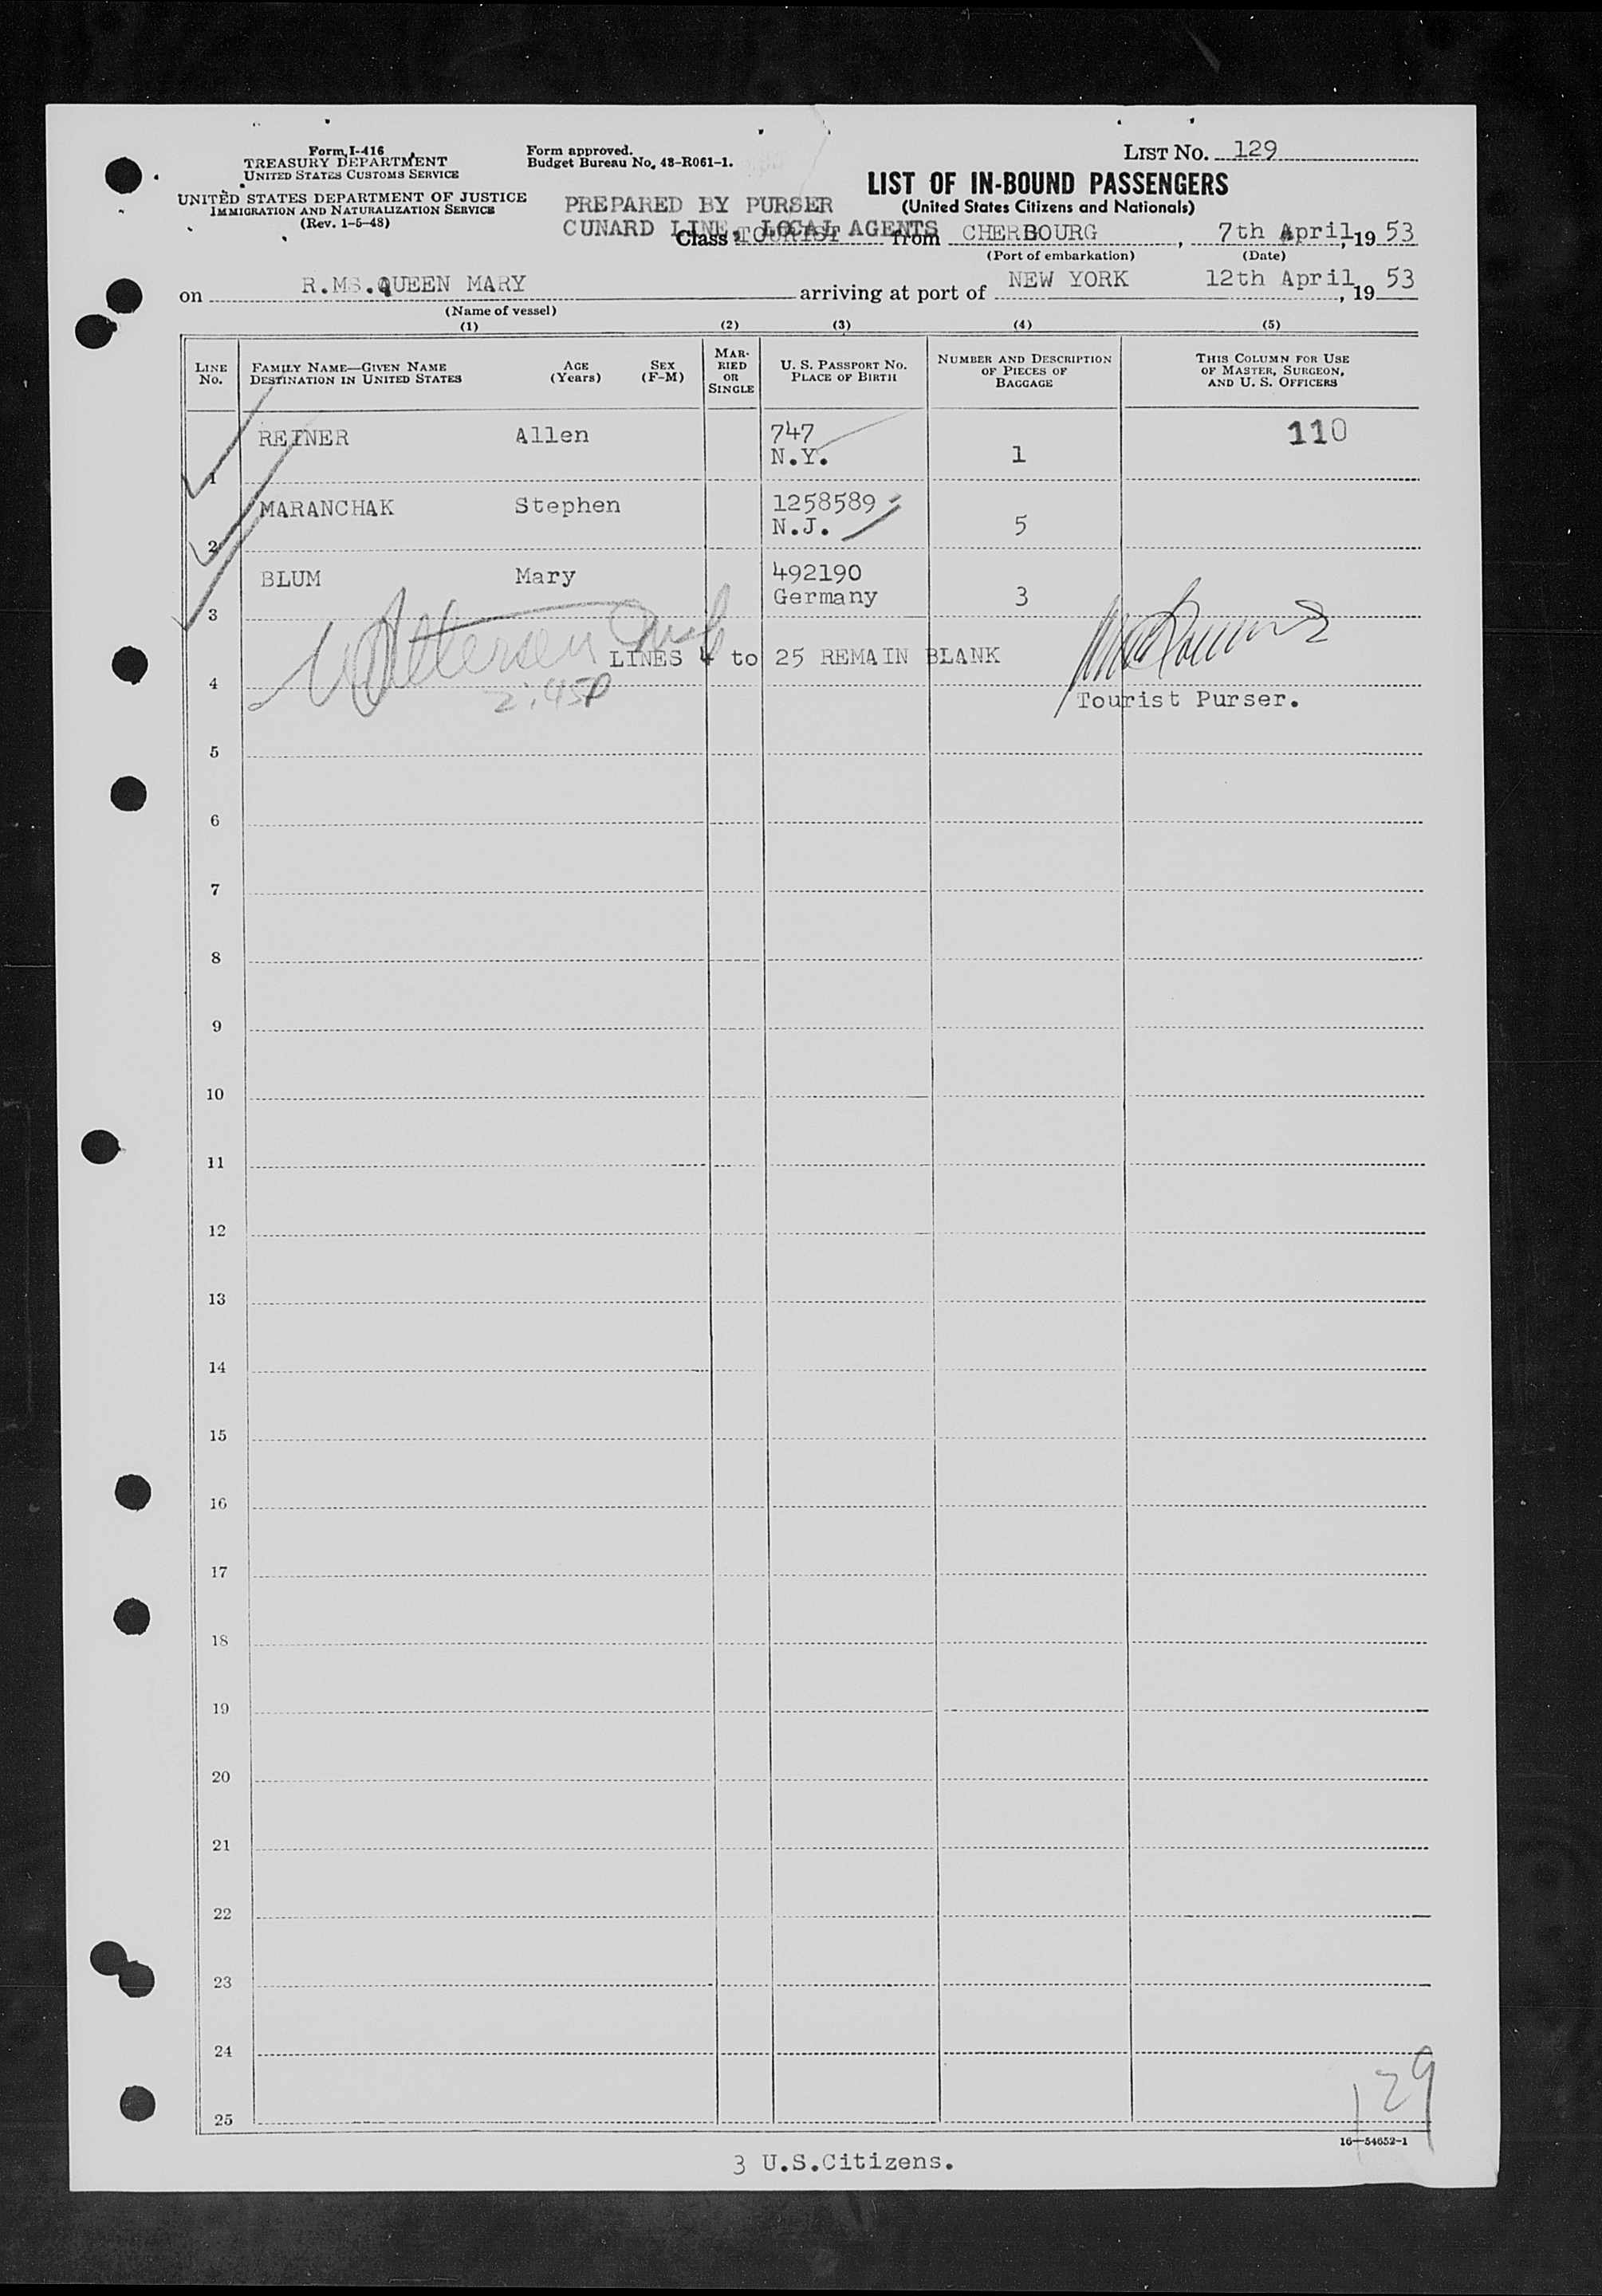 Form I-416
TREASURY DEPARTMENT
UNITED STATES CUSTOMS SERVICE
UNITED STATES DEPARTMENT OF JUSTICE
IMMIGRATION AND NATURALIZATION SERVICE
(Rev. 1-5-48)
Form approved.
Budget Bureau No. 48-R061-1.
LIST NO. 129
LIST OF IN-BOUND PASSENGERS
(United States Citizens and Nationals)
PREPARED BY PURSER
CUNARD LINE, LOCAL AGENTS
Class TOURIST from CHERBOURG, 7th April, 19 53
(Port of embarkation) (Date)
on R.MS.QUEEN MARY arriving at port of NEW YORK 12th April, 19 53
(Name of vessel)
(1) (2) (3) (4) (5)
LINE No.
FAMILY NAME—GIVEN NAME
DESTINATION IN UNITED STATES
AGE (Years)
SEX (F-M)
MARRIED OR SINGLE
U. S. PASSPORT NO.
PLACE OF BIRTH
NUMBER AND DESCRIPTION OF PIECES OF BAGGAGE
THIS COLUMN FOR USE OF MASTER, SURGEON, AND U. S. OFFICERS
1 REINER Allen 747 N.Y. 1 110
2 MARANCHAK Stephen 1258589 N.J. 5
3 BLUM Mary 492190 Germany 3
LINES 4 to 25 REMAIN BLANK
2:45P
4
Tourist Purser.
5
6
7
8
9
10
11
12
13
14
15
16
17
18
19
20
21
22
23
24
25
129
16—54652-1
3 U.S.Citizens.